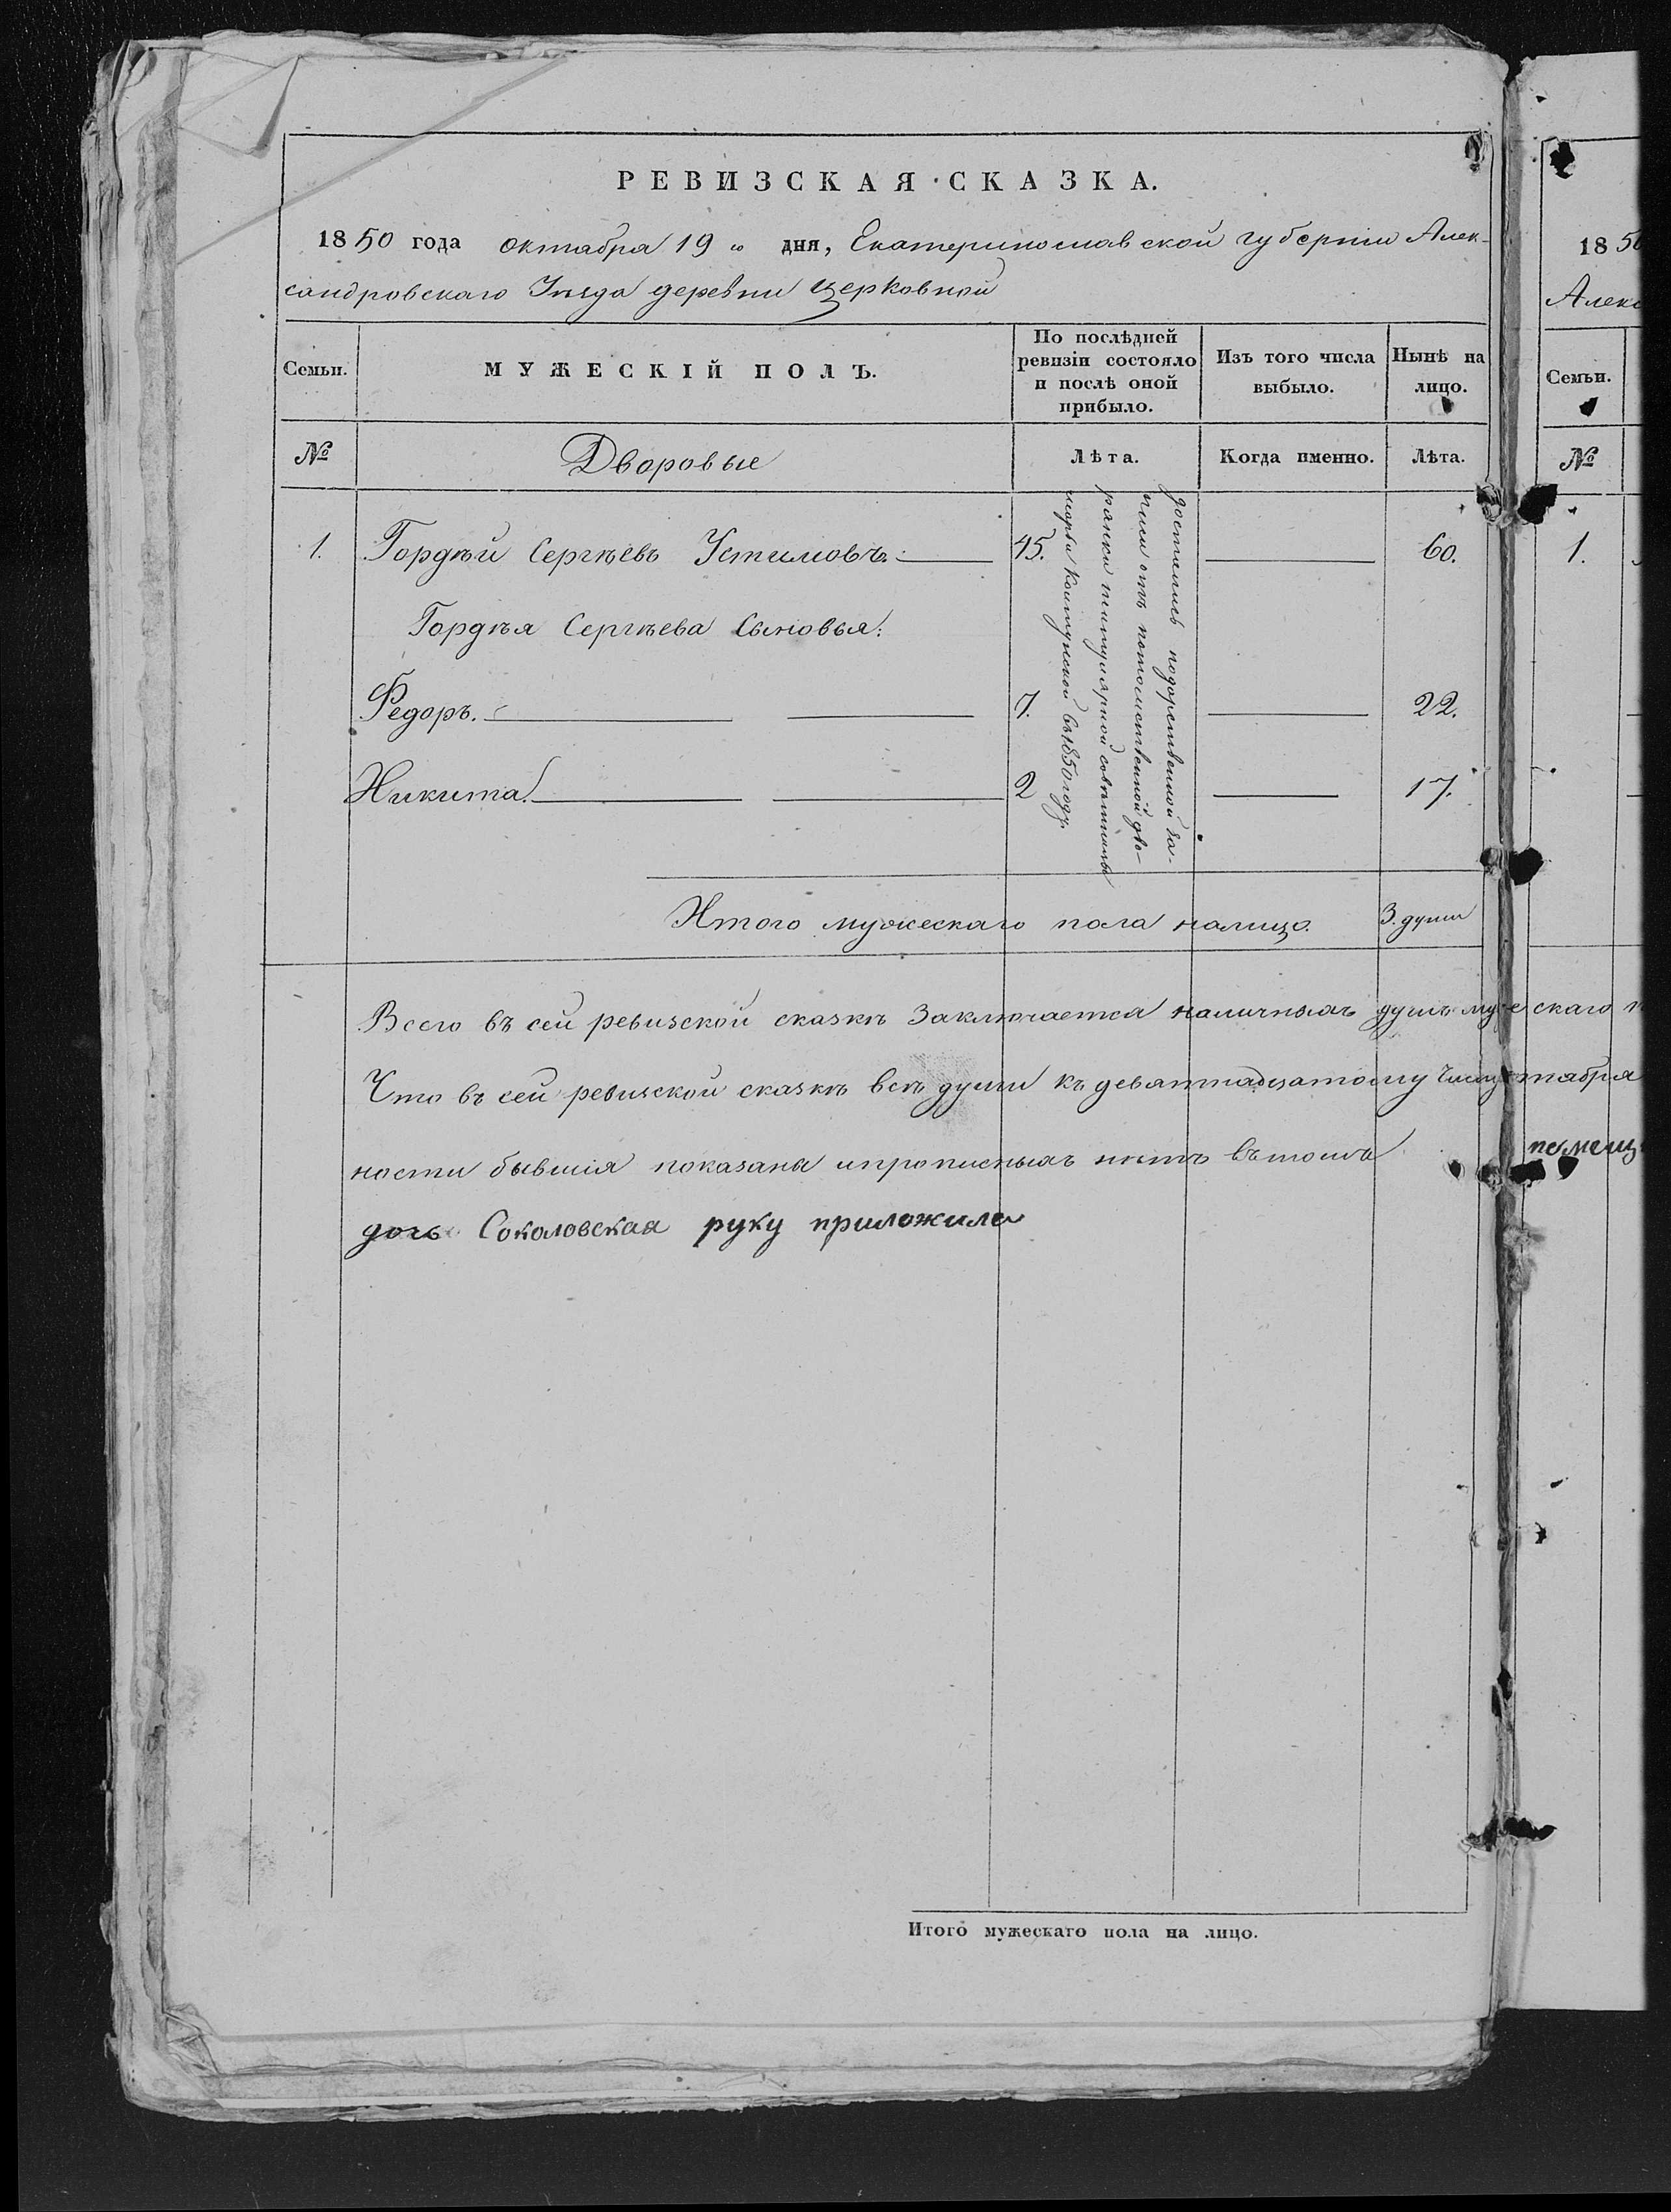 РЕВИЗСКАЯ СКАЗКА.
1850 года октября 19 го дня, Екатеринославской губернiи Алек-
сандровскаго Уѣзда деревни Церковной
Семьи.
МУЖЕСКIЙ ПОЛЪ.
По послѣдней
ревизiи состояло
и послѣ оной
прибыло.
Изъ того числа
выбыло.
Нынѣ на
лицо.
№
Дворовые
Лѣта.
Когда именно.
Лѣта.
1. Гордѣй Сергѣевъ Устимовъ. 45. 60.
Гордѣя Сергѣева Сыновья:
Федоръ. 7. 22.
Никита. 2 17.
достались подарственной за-
писи отъ потомственной дво-
рянки титулярной совѣтницы
въ 1850 году.
Итого мужескаго пола налицо. 3. души
Всего въ сей ревизской сказкѣ заключается наличныхъ душъ мужескаго
Что въ сей ревизской сказкѣ всѣ души къ девятнадцатому числу октября
ности бывшiя показаны и прописныхъ нѣтъ въ томъ
помещ
дочь Соколовская руку приложила
Итого мужескаго пола на лицо.
1850
Алекс
Семьи.
№
1.